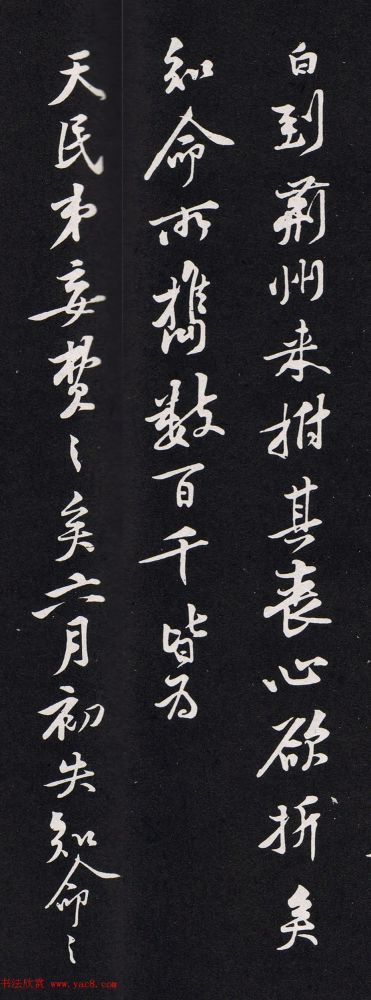 自到荆州来拊其丧心欲折矣
知命所携数百千皆为
天民弟妄费〻矣六月初失知命〻
书法欣赏 www.yac8.com